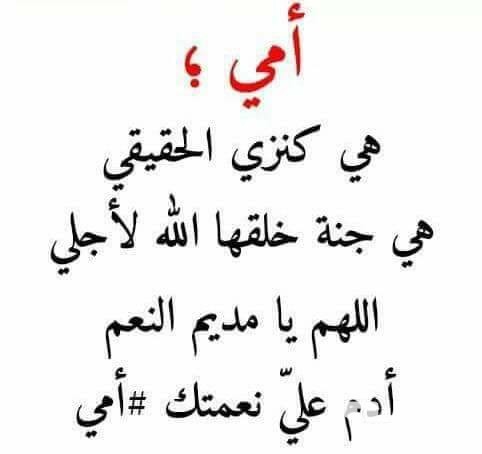 أمي ؛
هي كنزي الحقيقي
هي جنة خلقها الله لأجلي
اللهم يا مديم النعم
أدم عليّ نعمتك #أمي